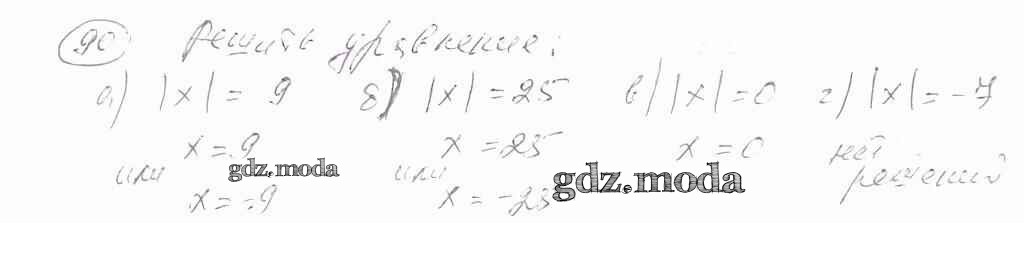 90 Решить уравнение:
а) |x| = 9 б) |x| = 25 в) |x| = 0 г) |x| = -7
x = 9 x = 25 x = 0 нет
или gdz.moda или gdz.moda решений
x = -9 x = -25